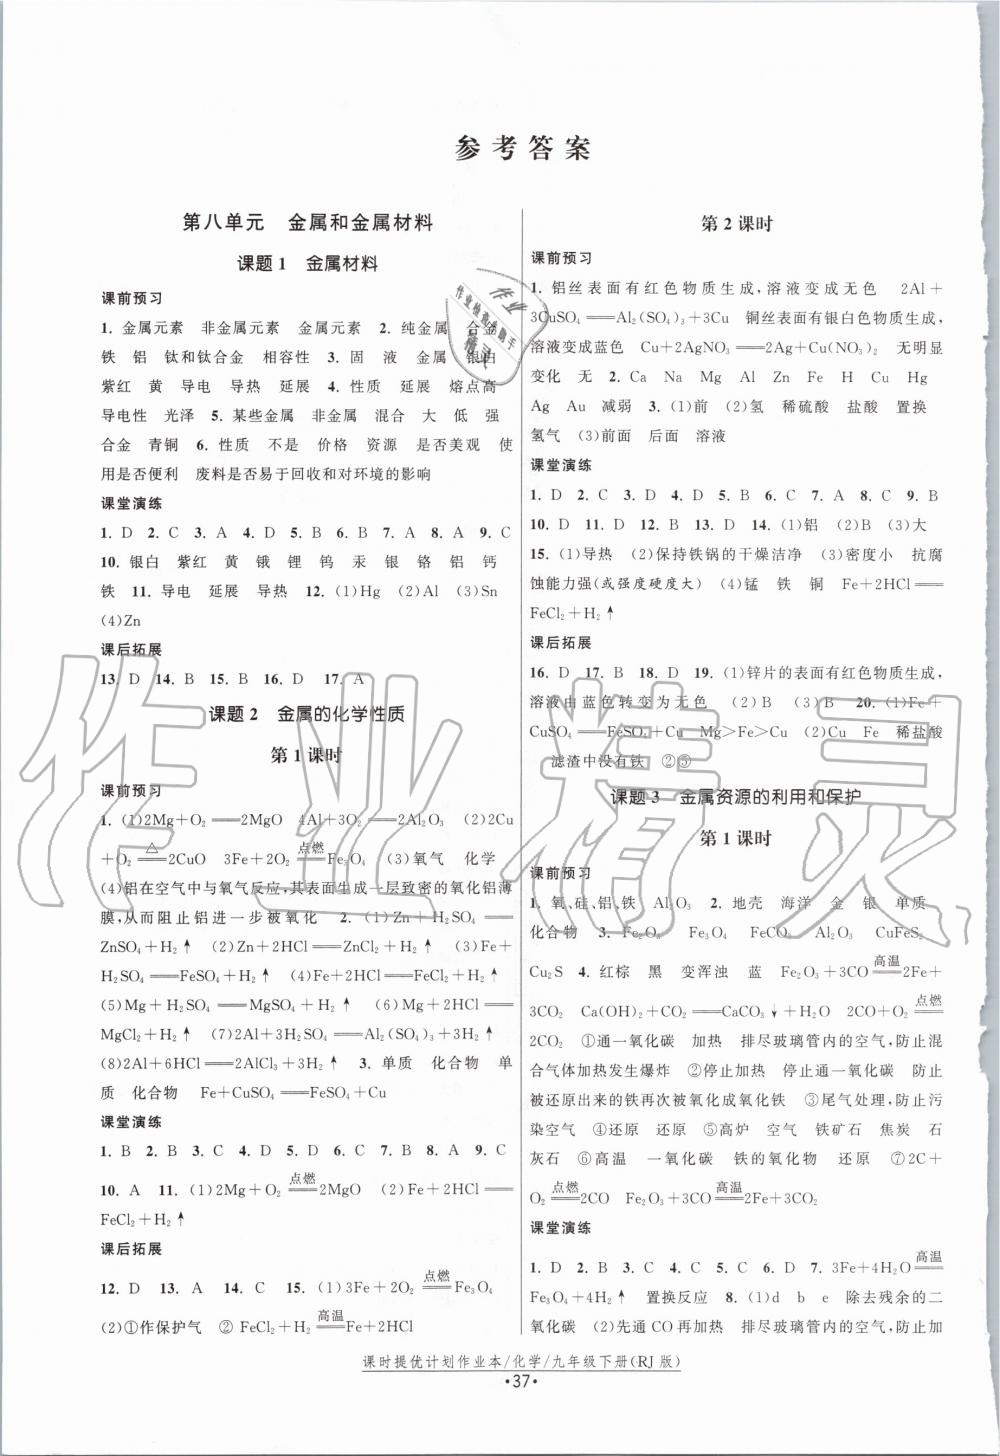 参考答案
第八单元　金属和金属材料
课题1　金属材料
课前预习
1. 金属元素　非金属元素　金属元素　2. 纯金属　合金
铁　铝　钛和钛合金　相容性　3. 固　液　金属　银白
紫红　黄　导电　导热　延展　4. 性质　延展　熔点高
导电性　光泽　5. 某些金属　非金属　混合　大　低　强
合金　青铜　6. 性质　不是　价格　资源　是否美观　使
用是否便利　废料是否易于回收和对环境的影响
课堂演练
1. D　2. C　3. A　4. D　5. B　6. B　7. A　8. A　9. C
10. 银白　紫红　黄　锇　锂　钨　汞　银　铬　铝　钙
铁　11. 导电　延展　导热　12. (1)Hg　(2)Al　(3)Sn
(4)Zn
课后拓展
13. D　14. B　15. B　16. D　17. A
课题2　金属的化学性质
第1课时
课前预习
1. (1)2Mg+O₂══2MgO　4Al+3O₂══2Al₂O₃　(2)2Cu
+O₂══△2CuO　3Fe+2O₂══点燃Fe₃O₄　(3)氧气　化学
(4)铝在空气中与氧气反应,其表面生成一层致密的氧化铝薄
膜,从而阻止铝进一步被氧化　2. (1)Zn+H₂SO₄══
ZnSO₄+H₂↑　(2)Zn+2HCl══ZnCl₂+H₂↑　(3)Fe+
H₂SO₄══FeSO₄+H₂↑　(4)Fe+2HCl══FeCl₂+H₂↑
(5)Mg+H₂SO₄══MgSO₄+H₂↑　(6)Mg+2HCl══
MgCl₂+H₂↑　(7)2Al+3H₂SO₄══Al₂(SO₄)₃+3H₂↑
(8)2Al+6HCl══2AlCl₃+3H₂↑　3. 单质　化合物　单
质　化合物　Fe+CuSO₄══FeSO₄+Cu
课堂演练
1. B　2. B　3. C　4. D　5. D　6. C　7. B　8. A　9. C
10. A　11. (1)2Mg+O₂══点燃2MgO　(2)Fe+2HCl══
FeCl₂+H₂↑
课后拓展
12. D　13. A　14. C　15. (1)3Fe+2O₂══点燃Fe₃O₄
(2)①作保护气　②FeCl₂+H₂══高温Fe+2HCl
第2课时
课前预习
1. 铝丝表面有红色物质生成,溶液变成无色　2Al+
3CuSO₄══Al₂(SO₄)₃+3Cu　铜丝表面有银白色物质生成,
溶液变成蓝色　Cu+2AgNO₃══2Ag+Cu(NO₃)₂　无明显
变化　无　2. Ca　Na　Mg　Al　Zn　Fe　H　Cu　Hg
Ag　Au　减弱　3. (1)前　(2)氢　稀硫酸　盐酸　置换
氢气　(3)前面　后面　溶液
课堂演练
1. D　2. C　3. C　4. C　5. B　6. C　7. A　8. C　9. B
10. D　11. D　12. B　13. D　14. (1)铝　(2)B　(3)大
15. (1)导热　(2)保持铁锅的干燥洁净　(3)密度小　抗腐
蚀能力强(或强度硬度大)　(4)锰　铁　铜　Fe+2HCl══
FeCl₂+H₂↑
课后拓展
16. D　17. B　18. D　19. (1)锌片的表面有红色物质生成,
溶液由蓝色转变为无色　(2)B　(3)B　20. (1)Fe+
CuSO₄══FeSO₄+Cu　Mg>Fe>Cu　(2)Cu　Fe　稀盐酸
滤渣中没有铁　②⑤
课题3　金属资源的利用和保护
第1课时
课前预习
1. 氧、硅、铝、铁　Al₂O₃　2. 地壳　海洋　金　银　单质
化合物　3. Fe₂O₃　Fe₃O₄　FeCO₃　Al₂O₃　CuFeS₂
Cu₂S　4. 红棕　黑　变浑浊　蓝　Fe₂O₃+3CO══高温2Fe+
3CO₂　Ca(OH)₂+CO₂══CaCO₃↓+H₂O　2CO+O₂══点燃
2CO₂　①通一氧化碳　加热　排尽玻璃管内的空气,防止混
合气体加热发生爆炸　②停止加热　停止通一氧化碳　防止
被还原出来的铁再次被氧化成氧化铁　③尾气处理,防止污
染空气　④还原　还原　⑤高炉　空气　铁矿石　焦炭　石
灰石　⑥高温　一氧化碳　铁的氧化物　还原　⑦2C+
O₂══点燃2CO　Fe₂O₃+3CO══高温2Fe+3CO₂
课堂演练
1. D　2. B　3. C　4. C　5. C　6. D　7. 3Fe+4H₂O══高温
Fe₃O₄+4H₂↑　置换反应　8. (1)d　b　e　除去残余的二
氧化碳　(2)先通CO再加热　排尽玻璃管内的空气,防止加
课时提优计划作业本/化学/九年级下册(RJ版)
·37·
作业精灵